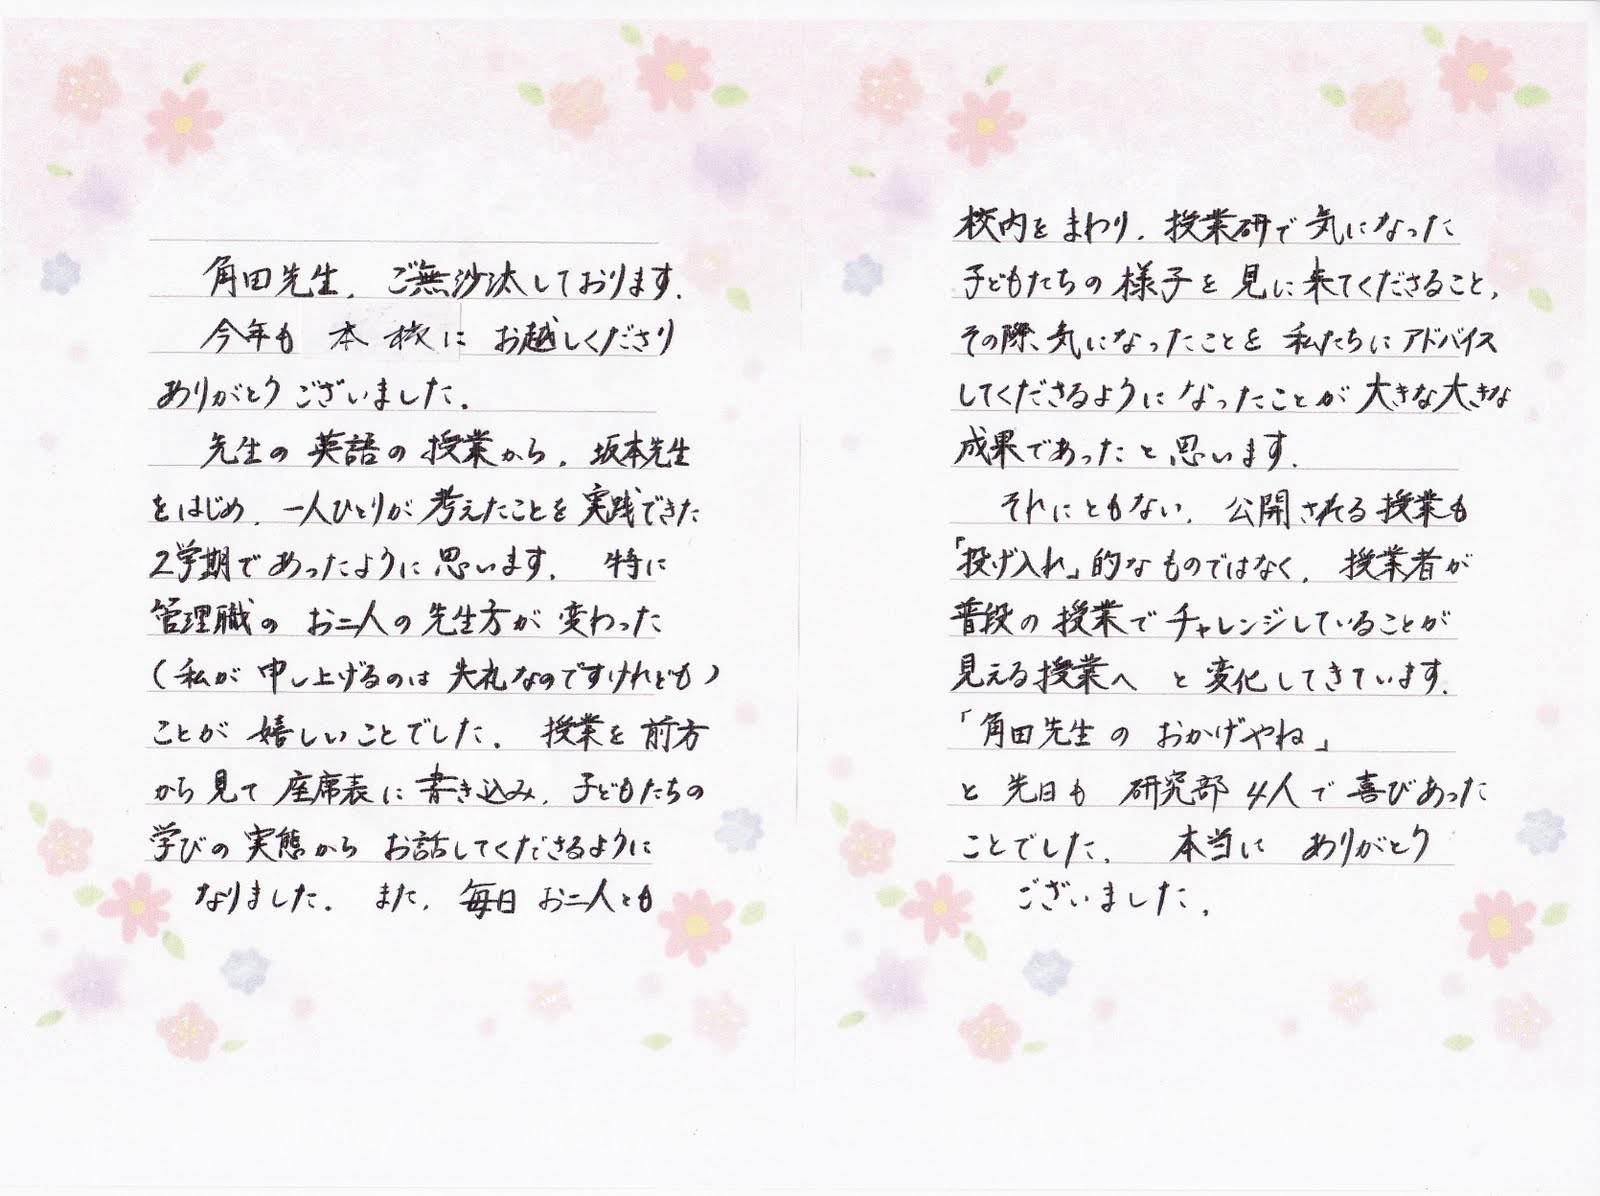 角田先生、ご無沙汰しております。
今年も 本校に お越しくださり
ありがとうございました。
先生の英語の授業から、坂本先生
をはじめ、一人ひとりが考えたことを実践できた
2学期であったように思います。 特に
管理職の お二人の先生方が 変わった
(私が申し上げるのは失礼なのですけれども)
ことが 嬉しいことでした。 授業を前方
から見て座席表に書き込み、子どもたちの
学びの実態から お話してくださるように
なりました。 また、毎日お二人とも
校内をまわり、授業研で気になった
子どもたちの様子を見に来てくださること、
その際、気になったことを 私たちにアドバイス
してくださるようになったことが大きな大きな
成果であったと思います。
それにともない、公開される授業も
「投げ入れ」的なものではなく、授業者が
普段の授業でチャレンジしていることが
見える授業へ と変化してきています。
「角田先生の おかげやね」
と先日も 研究部4人で喜びあった
ことでした。 本当に ありがとう
ございました。